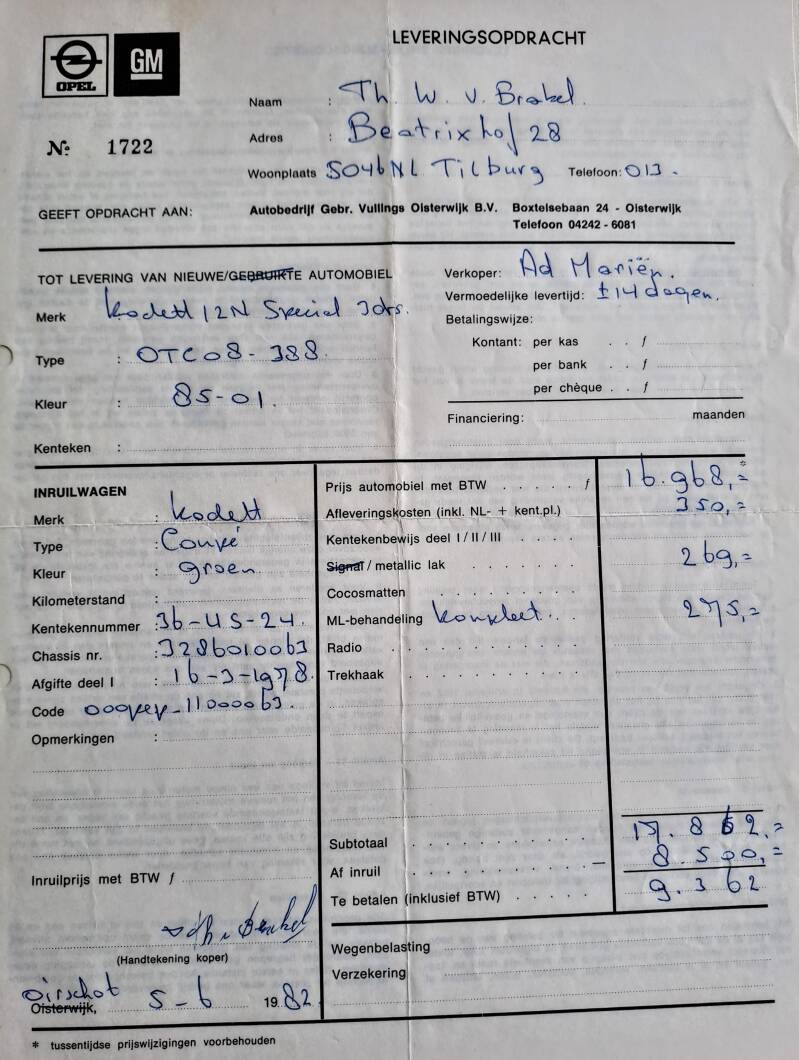 LEVERINGSOPDRACHT
OPEL GM
Naam : Th. W. v. Brakel.
Adres : Beatrixhof 28
№ 1722
Woonplaats 5046NL Tilburg Telefoon: 013.
GEEFT OPDRACHT AAN: Autobedrijf Gebr. Vullings Oisterwijk B.V. Boxtelsebaan 24 - Oisterwijk
Telefoon 04242 - 6081
TOT LEVERING VAN NIEUWE/GEBRUIKTE AUTOMOBIEL
Merk Kadett 12N Special 3drs.
Type : OTC08-388
Kleur : 85-01.
Kenteken :
Verkoper: Ad Mariën.
Vermoedelijke levertijd: ±14 dagen.
Betalingswijze:
Kontant: per kas . . ƒ
per bank . . ƒ
per chèque . . ƒ
Financiering: maanden
INRUILWAGEN
Merk : Kadett
Type : Coupé
Kleur : groen
Kilometerstand :
Kentekennummer : 36-US-24.
Chassis nr. : 3286010063
Afgifte deel I : 16-3-1978.
Code -11000063.
Opmerkingen :
Inruilprijs met BTW ƒ
(Handtekening koper)
Oirschot
Oisterwijk, 5-6 1982
Prijs automobiel met BTW . . . . . ƒ 16.968,=*
Afleveringskosten (inkl. NL- + kent.pl.) 350,=
Kentekenbewijs deel I / II / III . . . .
Signaf / metallic lak . . . . . . 269,=
Cocosmatten . . . . . . . .
ML-behandeling kompleet . . 275,=
Radio . . . . . . . . . .
Trekhaak . . . . . . . . .
Subtotaal . . . . . . . 17.862,=
Af inruil . . . . . . . — 8.500,=
Te betalen (inklusief BTW) . . . . 9.362
Wegenbelasting
Verzekering
* tussentijdse prijswijzigingen voorbehouden